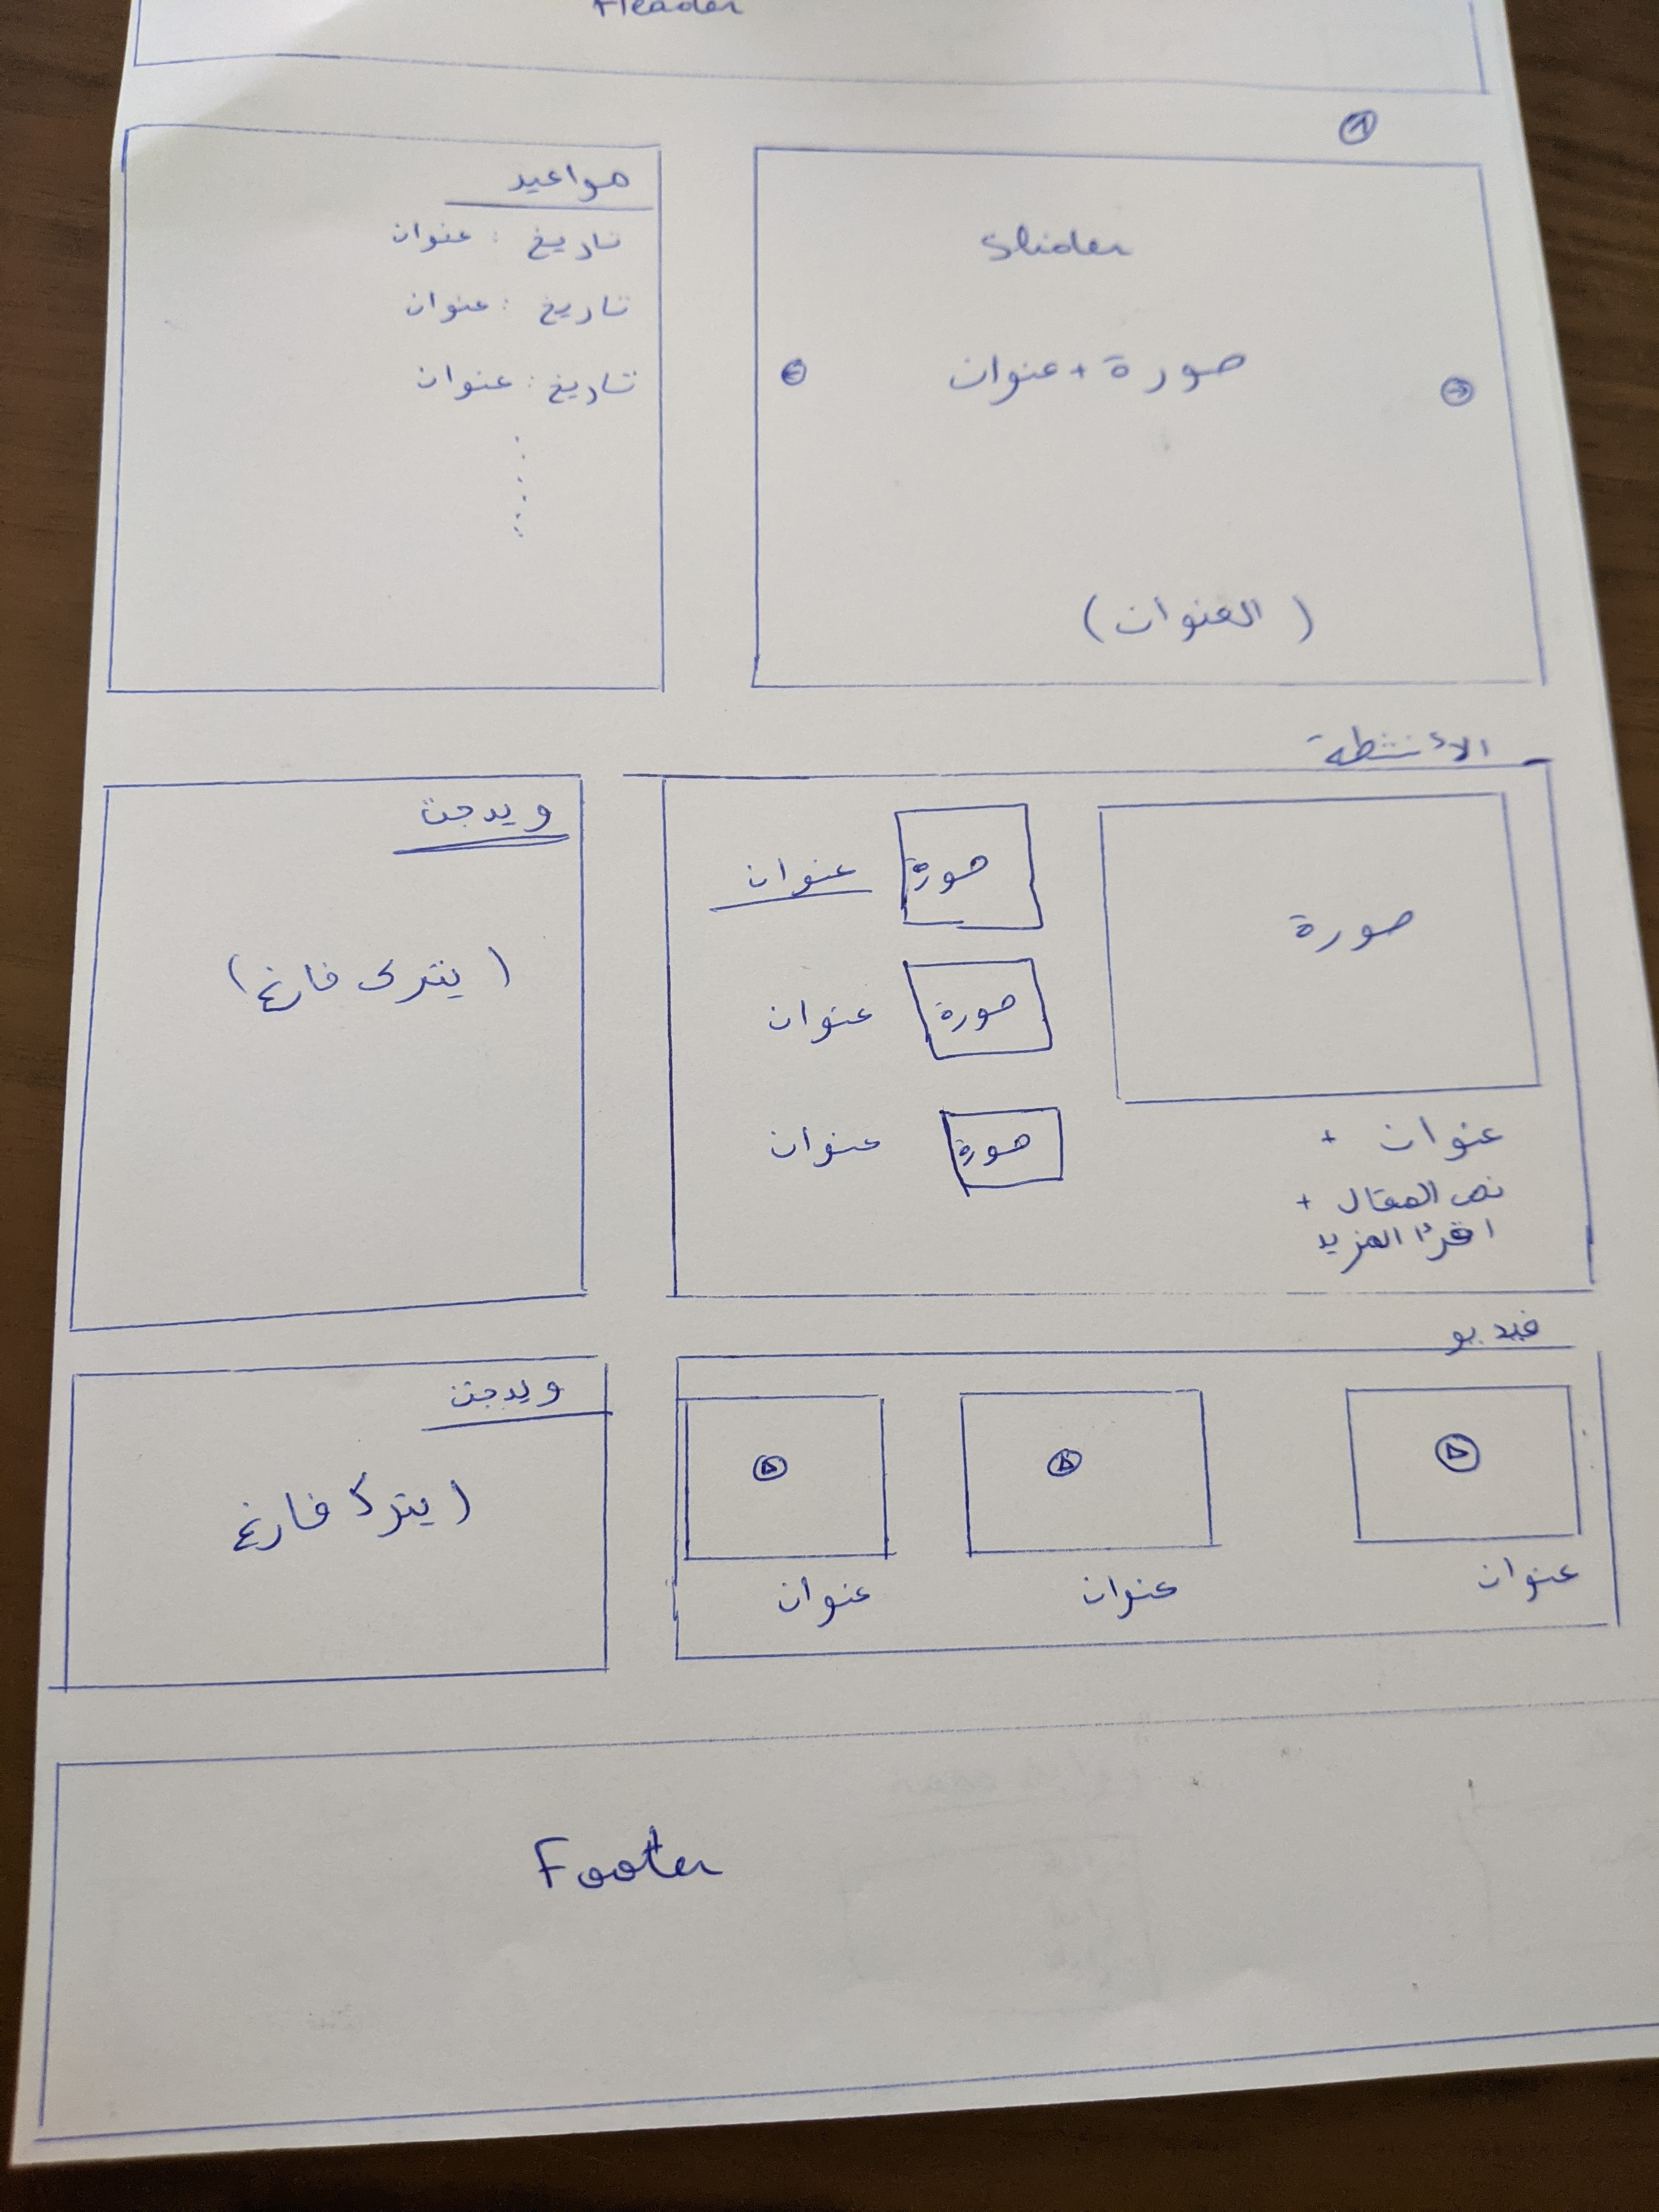 Header
1
Slider
صورة + عنوان
(العنوان)
مواعيد
تاريخ : عنوان
تاريخ : عنوان
تاريخ : عنوان
الأنشطة
صورة
عنوان +
نص المقال +
اقرأ المزيد
صورة عنوان
صورة عنوان
صورة عنوان
ويدجت
(يترك فارغ)
فيديو
عنوان
عنوان
عنوان
ويدجت
(يترك فارغ
Footer